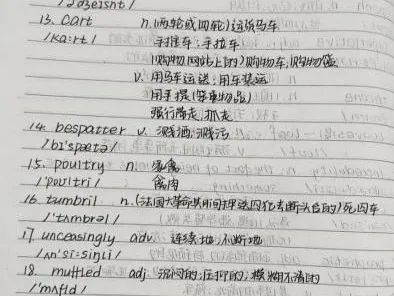 13. cart n.(两轮或四轮)运货马车
/kaːrt/ 手推车;手拉车
(购物网站上的)购物车;购物篮
v. 用马车运送;用车装运
用手提(笨重物品)
强行带走,抓走
14. bespatter v. 溅洒;溅污
/bɪ'spætə/
15. poultry n. 家禽
/'poʊltri/ 禽肉
16. tumbril n.(法国大革命期间押送囚犯去断头台的)死囚车
/'tʌmbrəl/
17. unceasingly adv. 连续地;不断地
/ʌn'siːsiŋli/
18. muffled adj. 沉闷的;压抑的;模糊不清的
/'mʌfld/